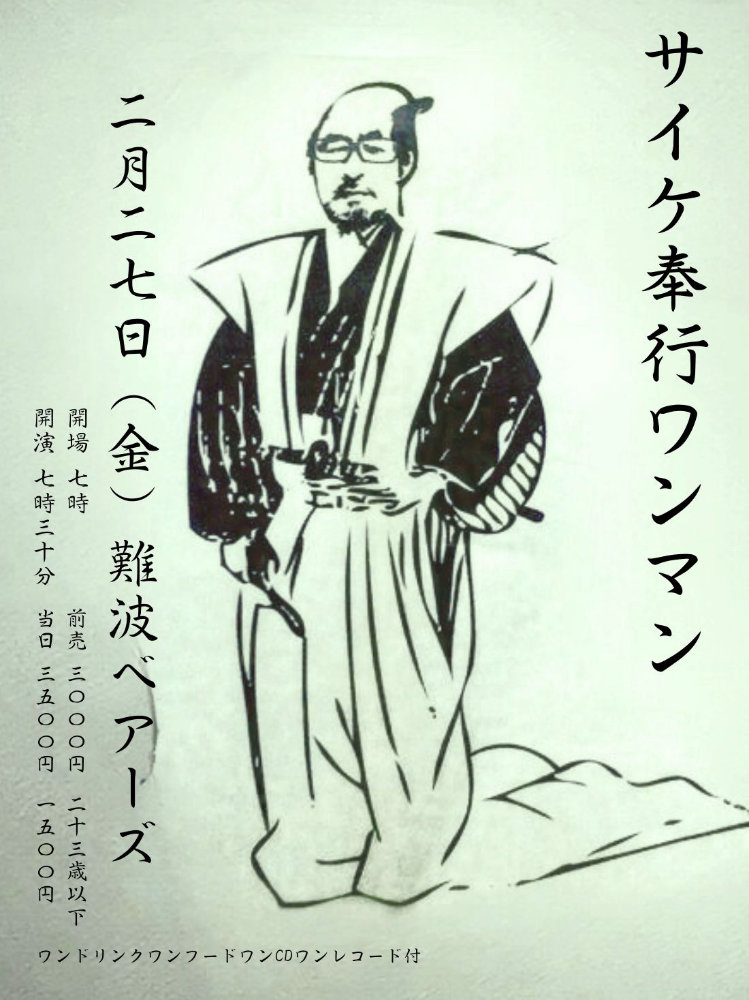 サイケ奉行ワンマン
二月二七日(金)難波ベアーズ
開場 七時 前売 三〇〇〇円 二十三歳以下
開演 七時三十分 当日 三五〇〇円 一五〇〇円
ワンドリンクワンフードワンCDワンレコード付